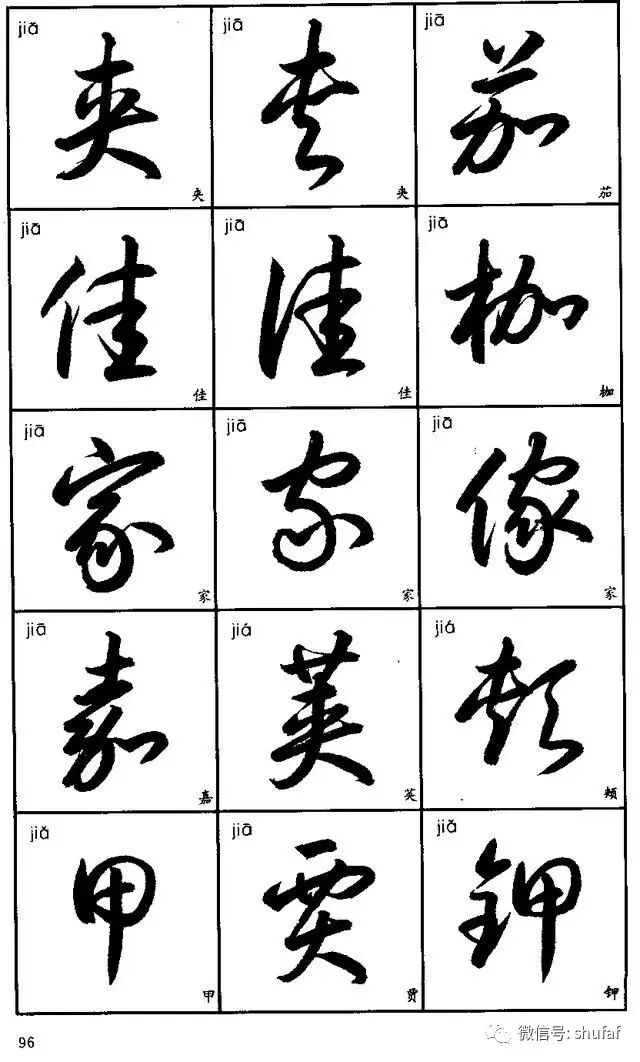 jiā jiā jiā
夾 夹 茄
夹 夹 茄
jiā jiā jiā
佳 佳 枷
佳 佳 枷
jiā jiā jiā
家 家 傢
家 家 家
jiā jiá jiá
嘉 莢 颊
嘉 荚 颊
jiǎ jiā jiǎ
甲 贾 鉀
甲 贾 钾
96
微信号: shufaf